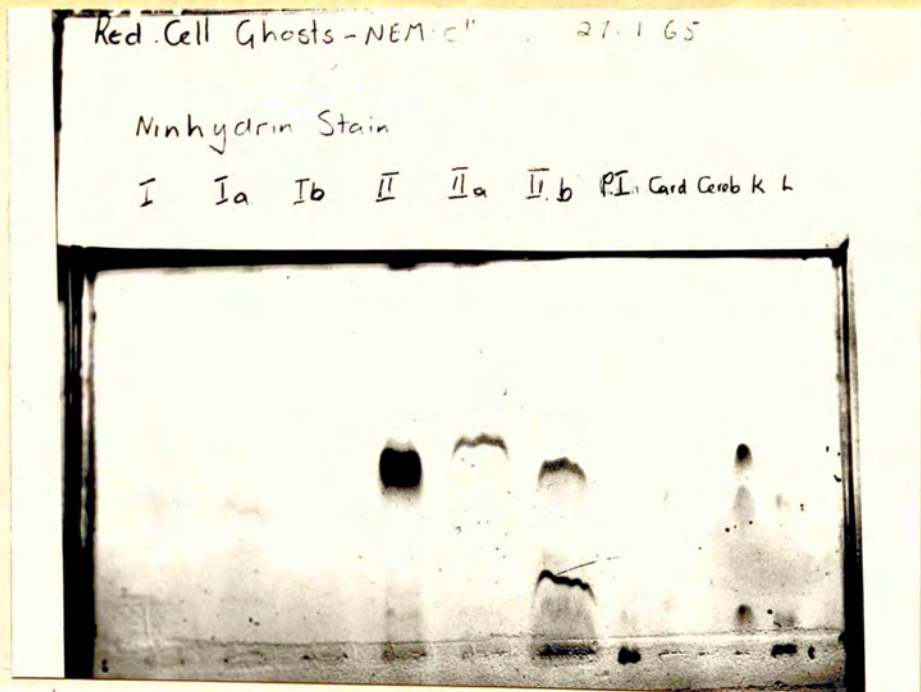 Red Cell Ghosts - NEM 27.1 65
Ninhydrin Stain
I Ia Ib II IIa II b P.I. Card Cerob K L